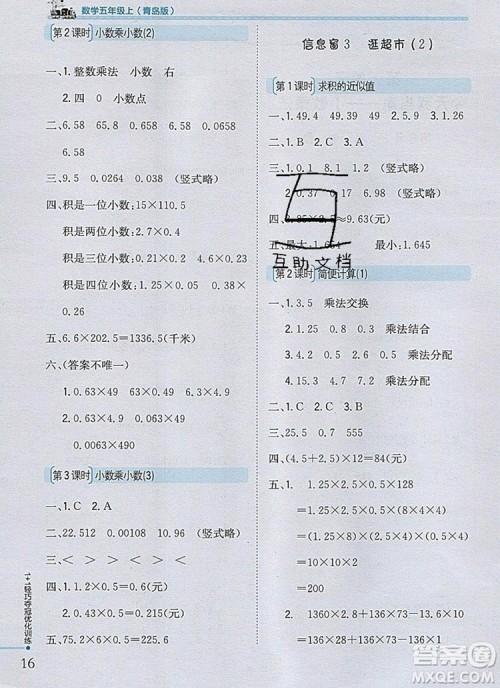 数学五年级上(青岛版)
第2课时 小数乘小数(2)
一、1.整数乘法 小数 右
2.四 0 小数点
二、6.58 65.8 0.658 0.658
0.0658
三、9.5 0.0264 0.038 (竖式略)
四、积是一位小数:15×0.9
积是两位小数:2.7×0.4
积是三位小数:0.25×0.5
五、6.6×202.5=1336.5(千米)
六、(答案不唯一)
1.0.63×49 63×0.49
2.0.63×4.9 6.3×0.49
0.0063×490
第3课时 小数乘小数(3)
一、1.C 2.A
二、22.512 0.00108 10.96 (竖式略)
三、< > < > < >
四、1.1.2×0.5=0.6(元)
2.0.4×0.5=0.2(元)
五、75.2×(2+1)=225.6
1+1轻巧夺冠优化训练
16
信息窗3 逛超市(2)
第1课时 求积的近似值
一、1.49.4 49.39 49 2.0.59
二、1.B 2.B 3.C 4.C
三、1.0.1 8.1 1.2 (竖式略)
2.0.37 0.17 6.98 (竖式略)
四、3.85×2.5≈9.63(元)
五、最大:1.654
互助文档
第2课时 简便计算(1)
一、1.3.5 乘法交换
2.1.25 0.8 乘法结合
3.0.29 0.71 乘法分配
4.1.5 3.7 乘法分配
二、1.B 2.C
三、25.05 1.25 5.4 4.44
四、(4.5+2.5)×12=84(元)
五、1.1.25×2.5×64
=1.25×2.5×(8×4×2)
=(1.25×8)×(2.5×4)×2
=200
2.1360×2.8+136×73-136
=136×28+136×73-136
=136×(28+73-1)
=13600